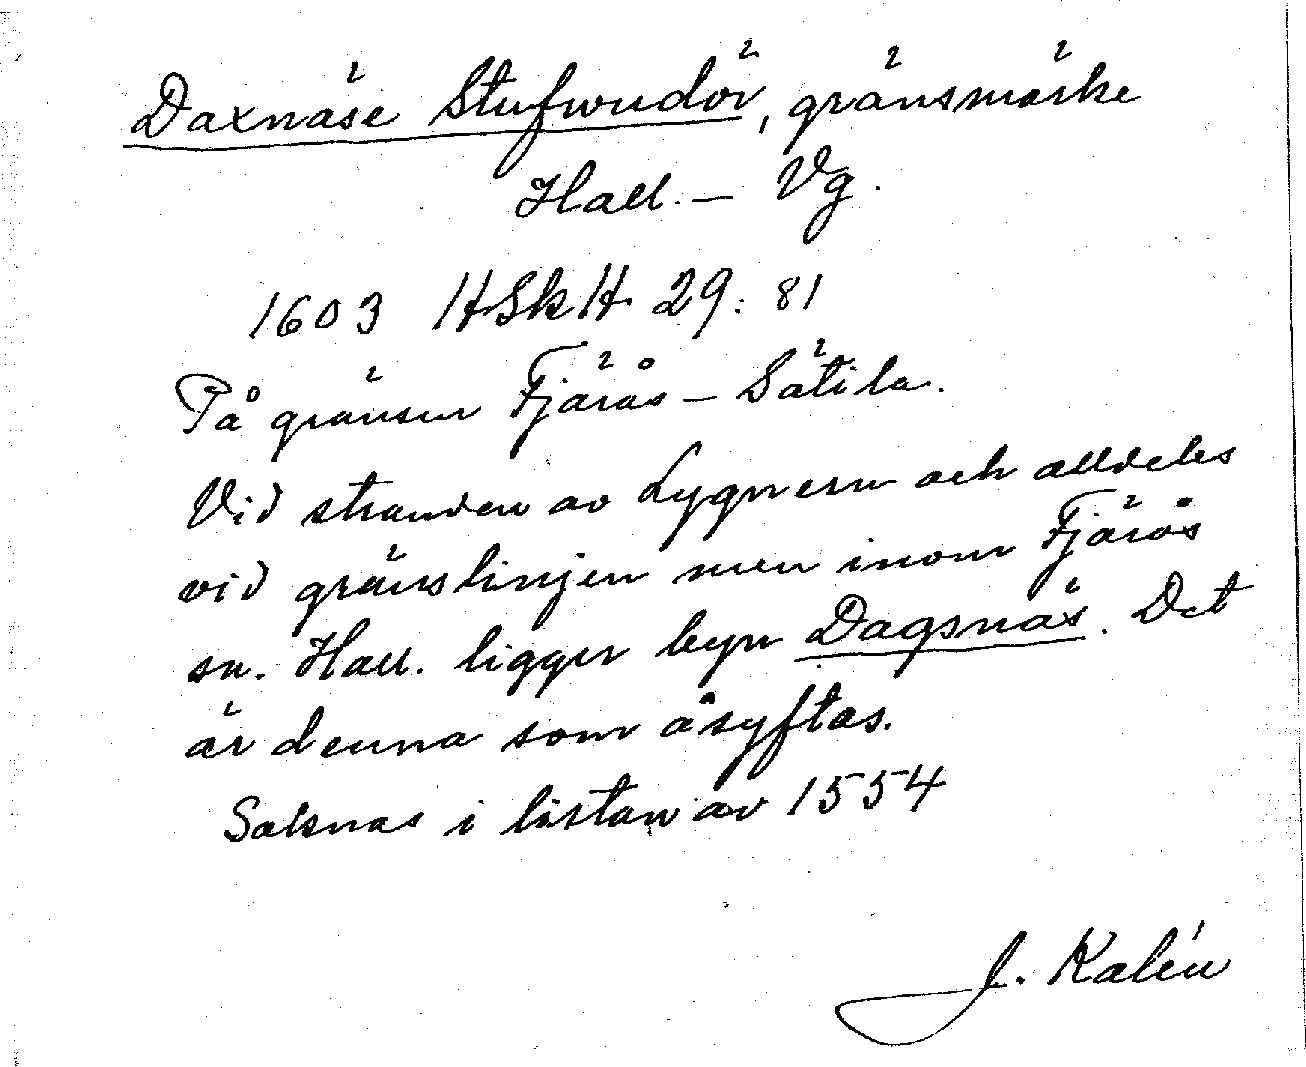 Daxnäse Stufwudör, gränsmärke
Hall. – Vg.
1603 HSkH 29: 81
På gränsen Fjärås – Sätila.
Vid stranden av Lygnern och alldeles
vid gränslinjen men inom Fjärås
sn. Hall. ligger byn Dagsnäs. Det
är denna som åsyftas.
Saknas i listan av 1554
J. Kalén